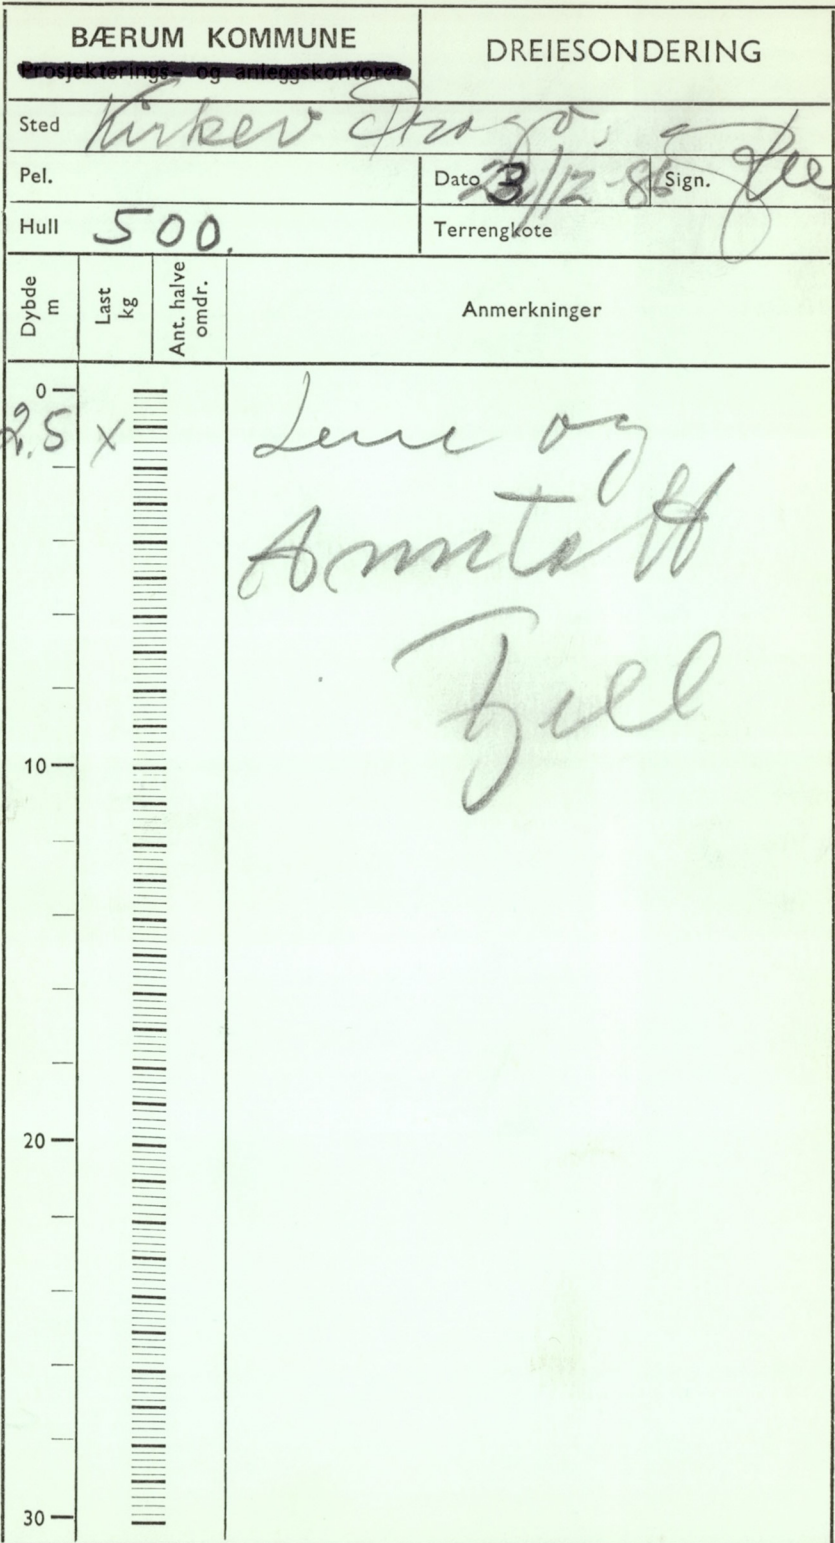 BÆRUM KOMMUNE
Prosjekterings- og anleggskontoret
DREIESONDERING
Sted Kirkev
Pel.
Dato 3/12-86 Sign.
Hull 500.
Terrengkote
Dybde m
Last kg
Ant. halve omdr.
Anmerkninger
0
2,5 x
Leire og
Antatt
Fjell
10
20
30